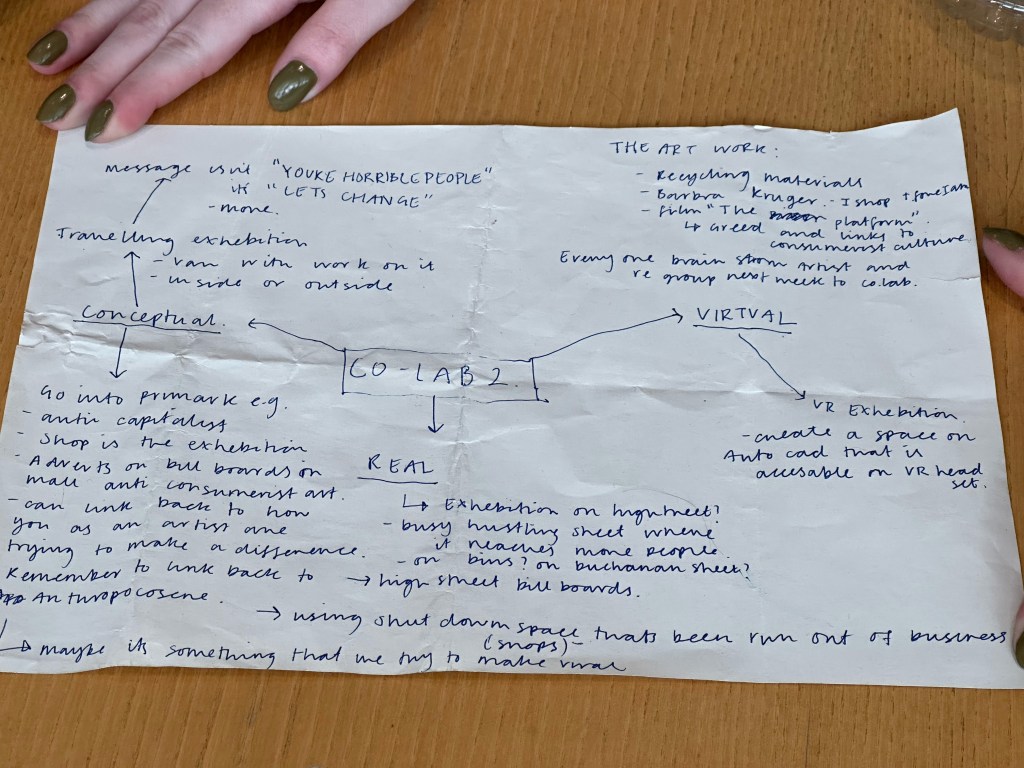 message isnt "YOU'RE HORRIBLE PEOPLE"
its "LETS CHANGE"
- move.
Travelling exhebition
- van with work on it
- inside or outside
Conceptual.
Go into primark e.g.
- antii capitalist
- Shop is the exhebition
- Adverts on bill boards on
mall anti consumerist art.
- can link back to how
you as an artist are
trying to make a difference.
Remember to link back to
Anthropocosene.
maybe its something that we try to make viral
CO-LAB 2.
REAL
Exhebition on highstreet?
- busy hustling street where
it reaches more people.
- on bins? on buchanan street?
→ high street bill boards.
→ using shut down space thats been run out of business
(shops)-
THE ART WORK:
- Recycling materials
- Barbra Kruger - I shop therefore I am
- Film "The platform".
↳ Greed and links to
consumerist culture
Every one brain storm artist and
re group next week to co.lab.
VIRTUAL
VR Exhebition.
- create a space on
Auto cad that is
accesable on VR head
set.